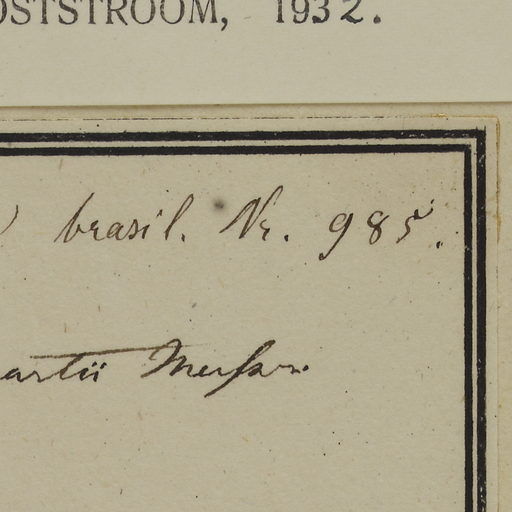 OSTSTROOM, 1932.
) brasil. Nr. 985.
artii Meissn.